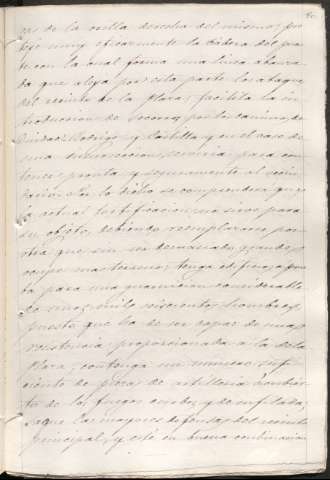 de la orilla derecha del mismo, pro
teje muy eficazmente la cabeza del puen
te con la cual forma una linea abalua
da que aleja por esta parte los ataques
del recinto de la Plaza; facilita la in
troduccion de socorros por los caminos de
Ciudad-Rodrigo y Castilla y en el caso de
una insurreccion, serviria para con
tener pronta y seguramente al vecin
dario. Por lo dicho se comprenderá que
la actual fortificacion no sirve para
su objeto, debiendo reemplazarse por
otra que sin ser demasiado grande,
ocupe mas terreno, tenga edificios a prue
ba para una guarnicion considerable
de unos mil seiscientos hombres,
puesto que ha de ser capaz de una
resistencia proporcionada a la de la
Plaza; contenga un número sufi
ciente de piezas de artilleria a cubier
to de los fuegos curbos y de enfilada,
saque las mayores defensas del recinto
principal, y esté en buena combinacion